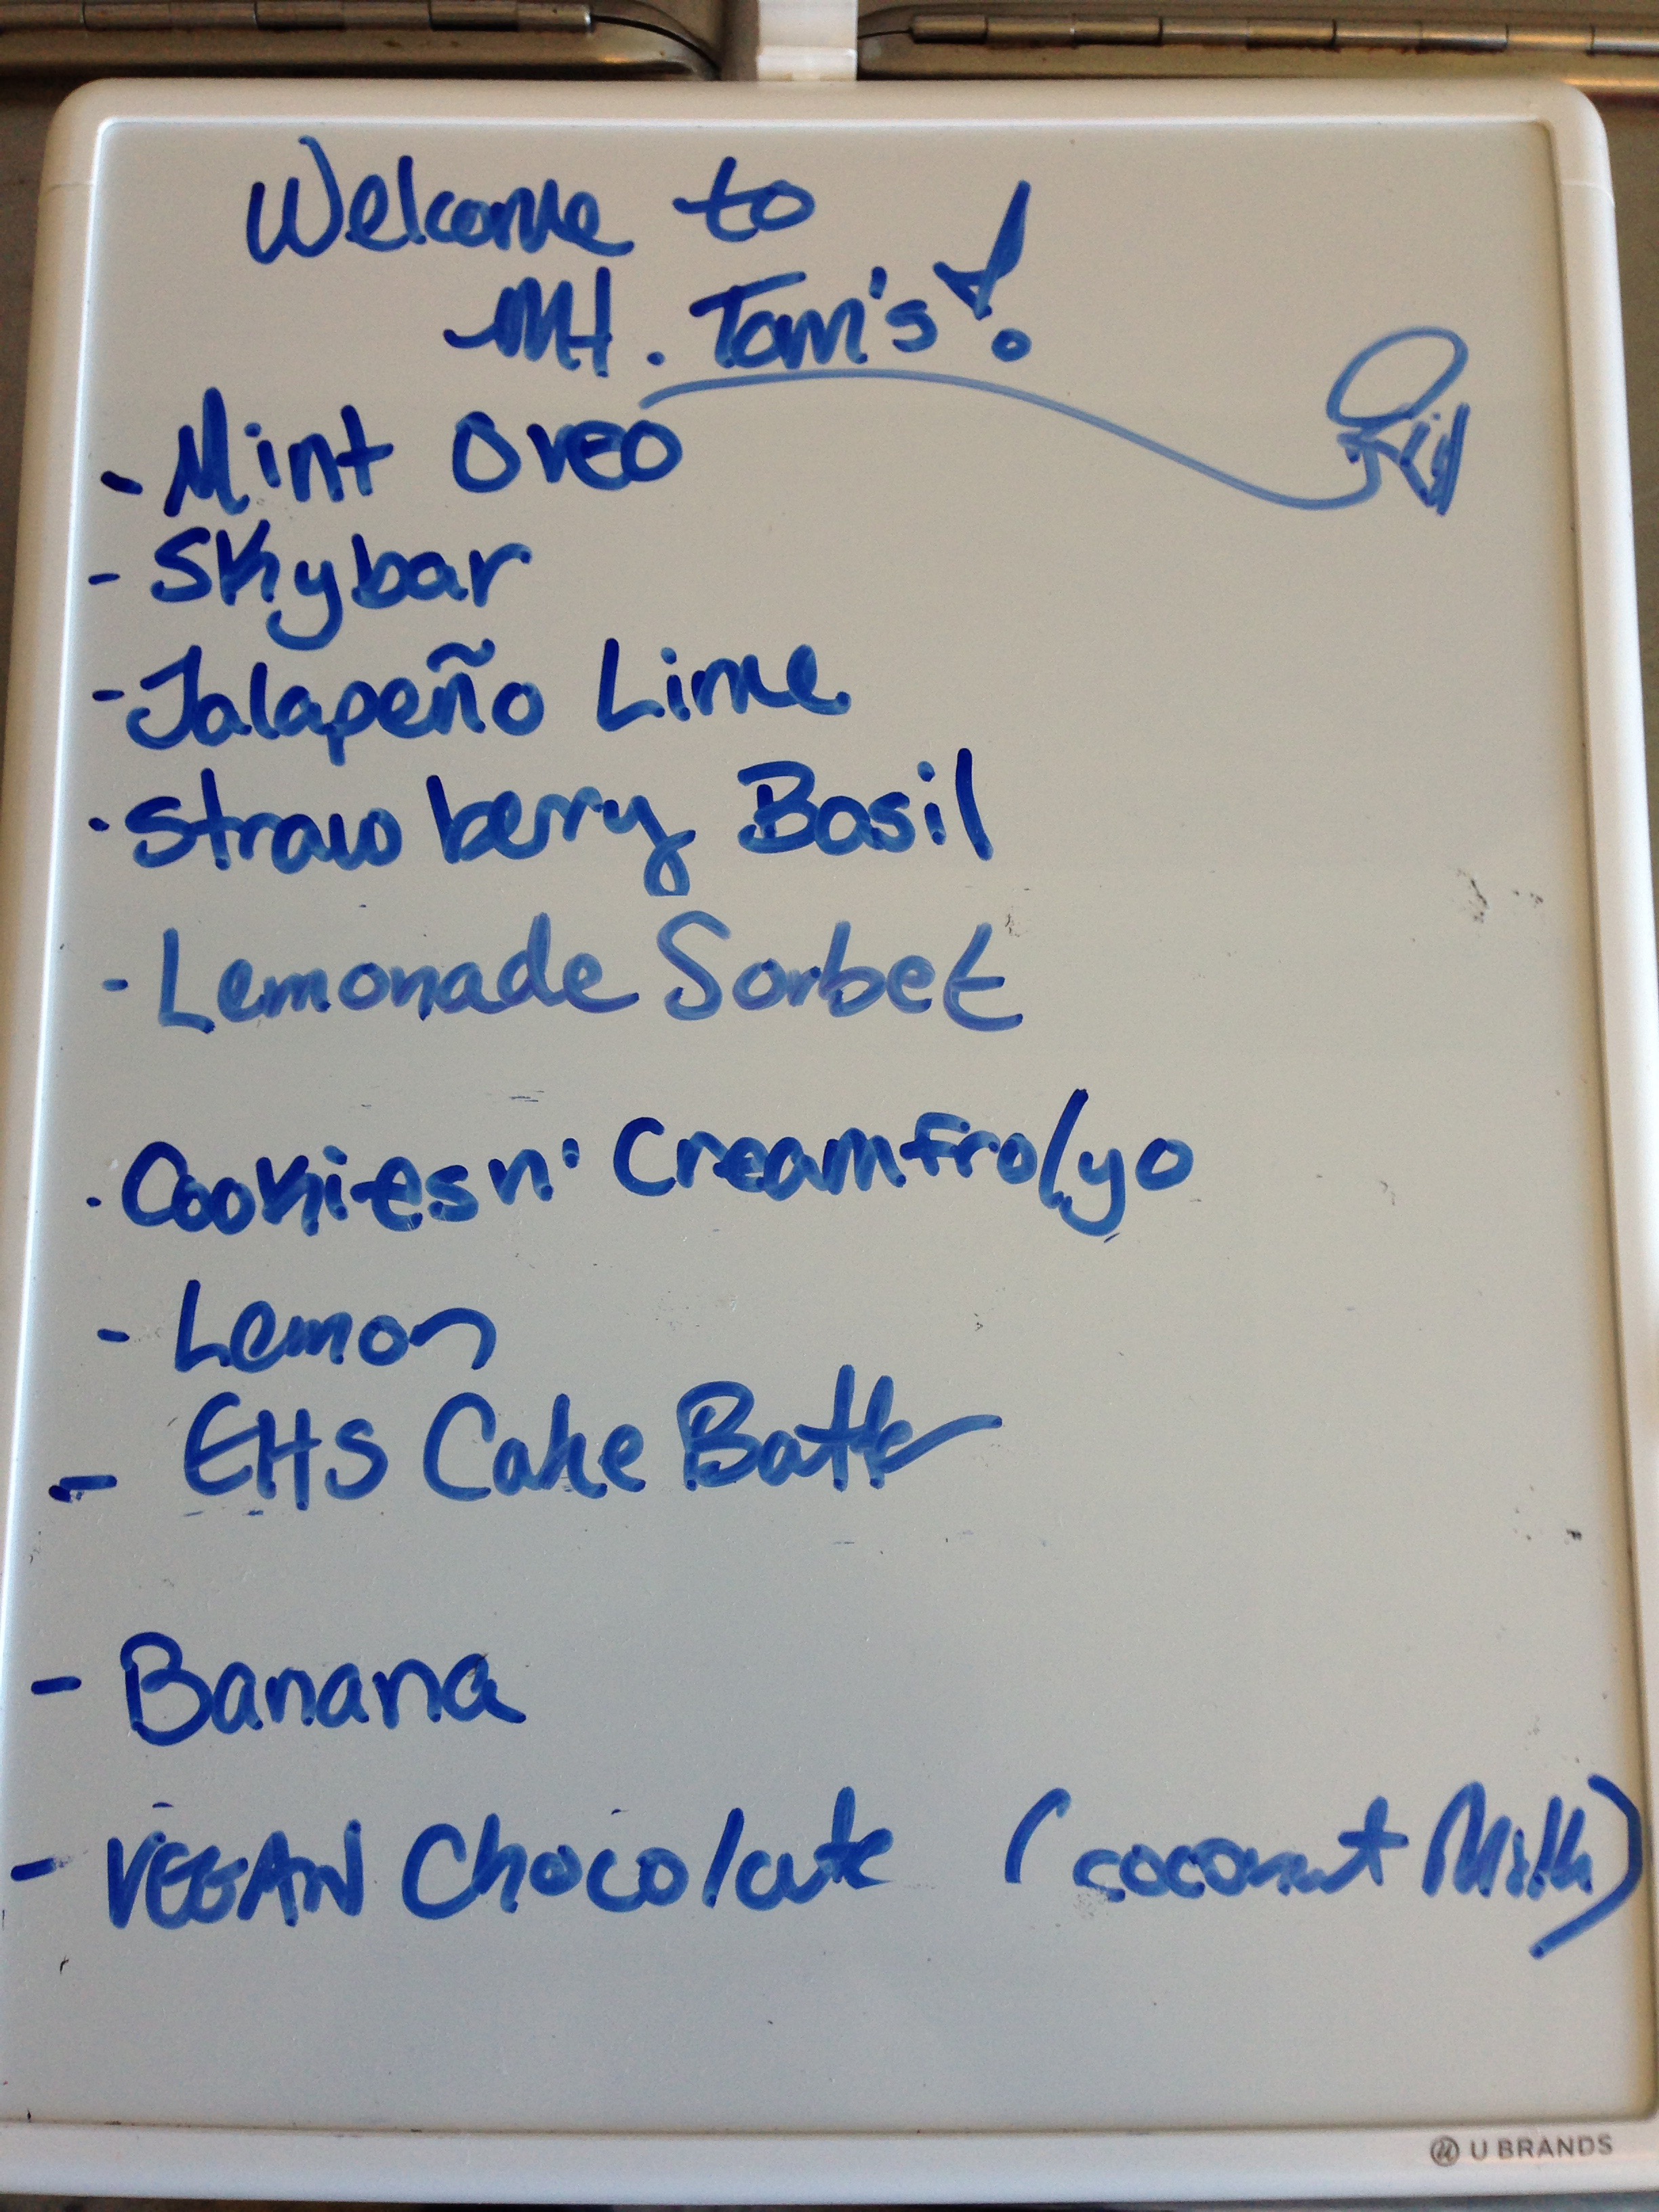 Welcome to
Mt. Tom's!
- Mint Oreo
- Skybar
- Jalapeño Lime
- Strawberry Basil
- Lemonade Sorbet
- Cookies n' Cream fro/yo
- Lemon
- EHS Cake Batter
- Banana
- VEGAN Chocolate (coconut Milk)
U BRANDS